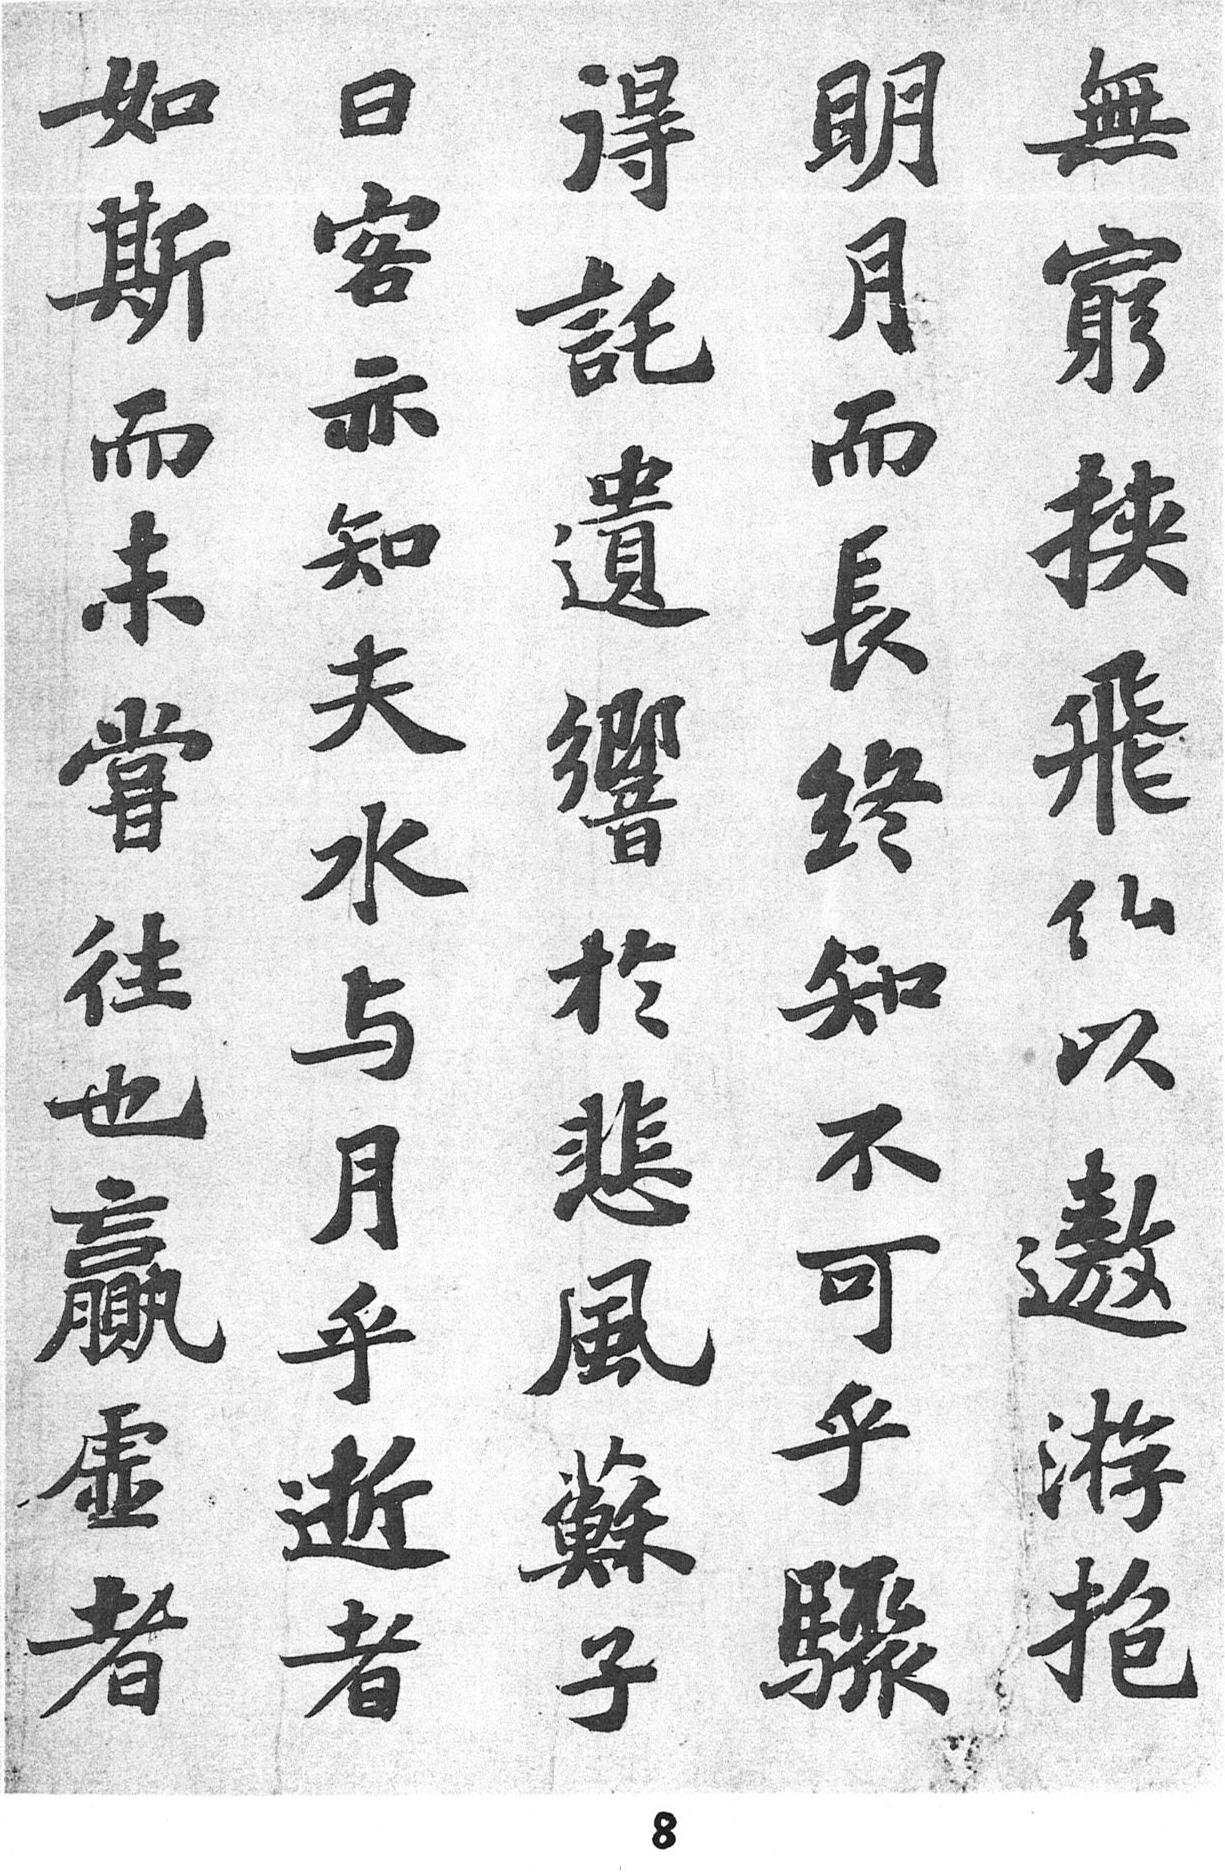 無窮挾飛仙以遨游抱
明月而長終知不可乎驟
得託遺響於悲風蘇子
曰客亦知夫水与月乎逝者
如斯而未嘗往也贏虛者
8